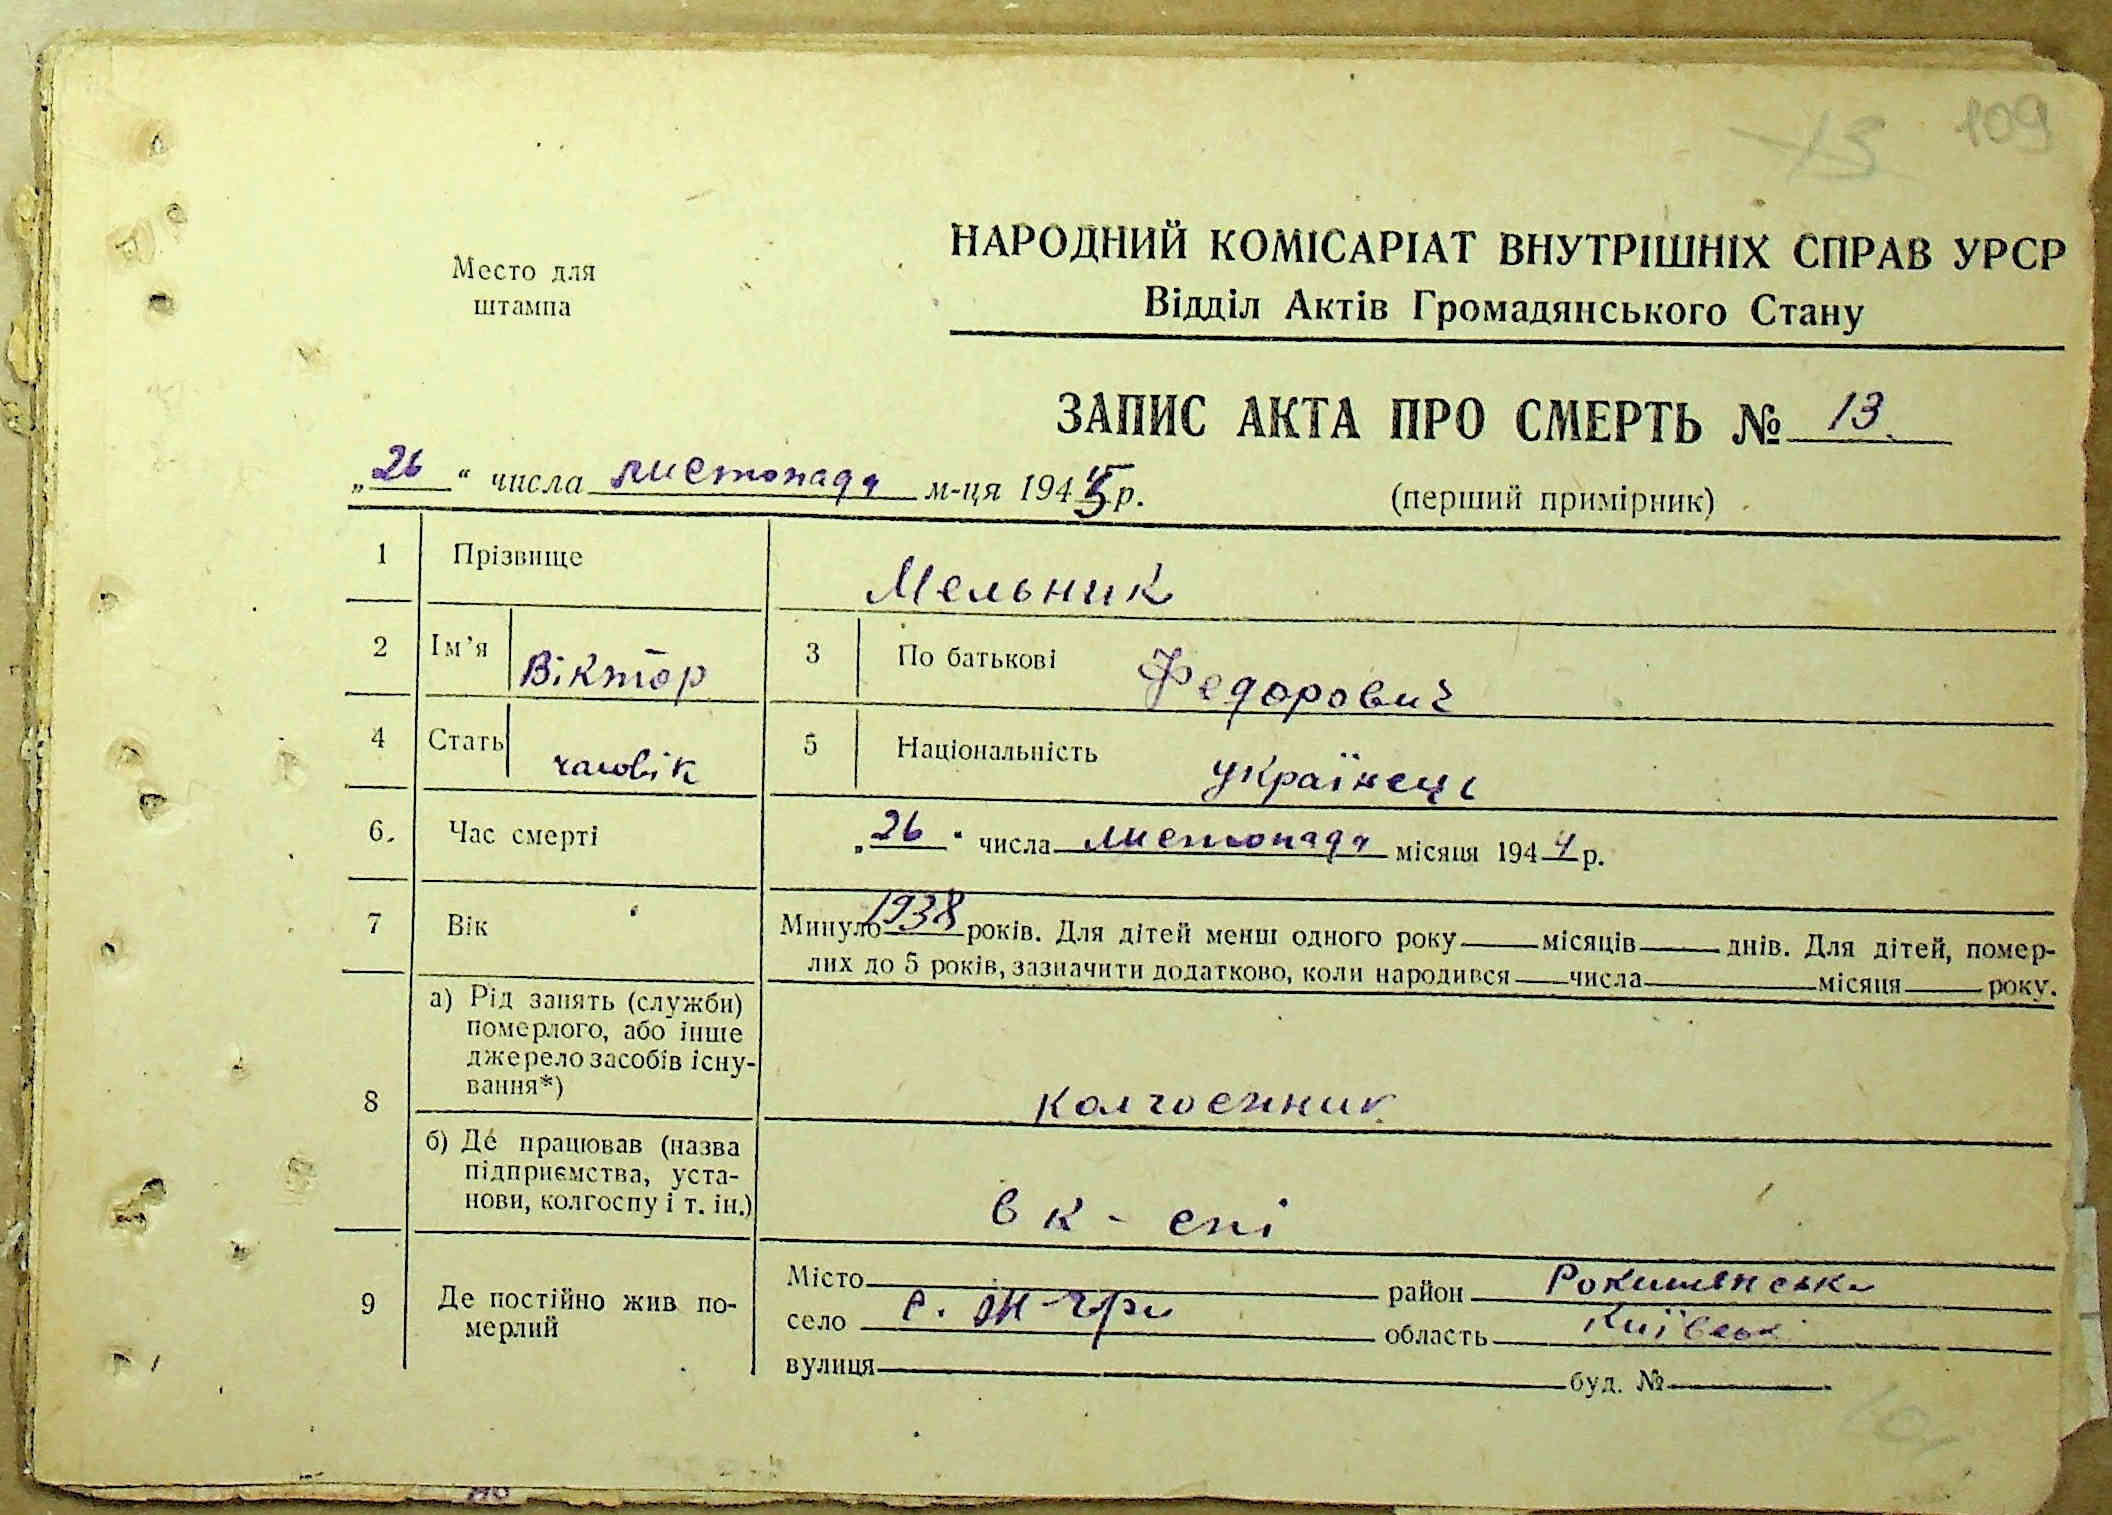 109
13
Место для
штампа
НАРОДНИЙ КОМІСАРІАТ ВНУТРІШНІХ СПРАВ УРСР
Відділ Актів Громадянського Стану
ЗАПИС АКТА ПРО СМЕРТЬ № 13.
„26“ числа листопада м-ця 1945 р. (перший примірник)
1 Прізвище Мельник
2 Ім’я Віктор 3 По батькові Федорович
4 Стать чаловік 5 Національність українець
6. Час смерті „26“ числа листопада місяця 1944 р.
7 Вік Минуло 1938 років. Для дітей менш одного року місяців днів. Для дітей, помер-
лих до 5 років, зазначити додатково, коли народився числа місяця року.
8 а) Рід занять (служби)
померлого, або інше
джерело засобів існу-
вання*)
колгоспник
б) Де працював (назва
підприємства, уста-
нови, колгоспу і т. ін.)
в к-спі
9 Де постійно жив по-
мерлий
Місто район Рокитянськ
село с. область Київськ
вулиця буд. №